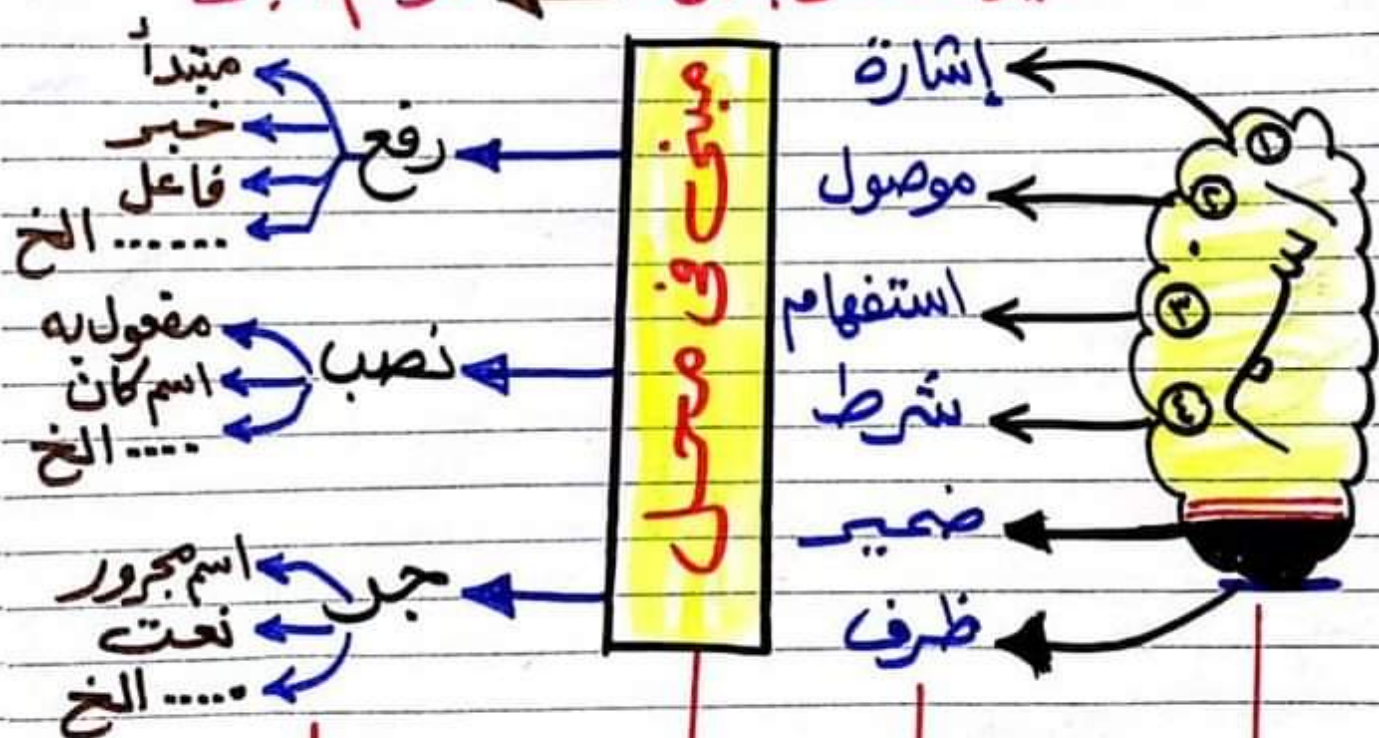 ١
إشارة
٢
موصول
٣
استفهام
٤
شرط
ضمير
ظرف
مبنى فى محل
رفع
مبتدأ
خبر
فاعل
...... الخ
نصب
مفعول به
اسم كان
.... الخ
جر
اسم مجرور
نعت
..... الخ